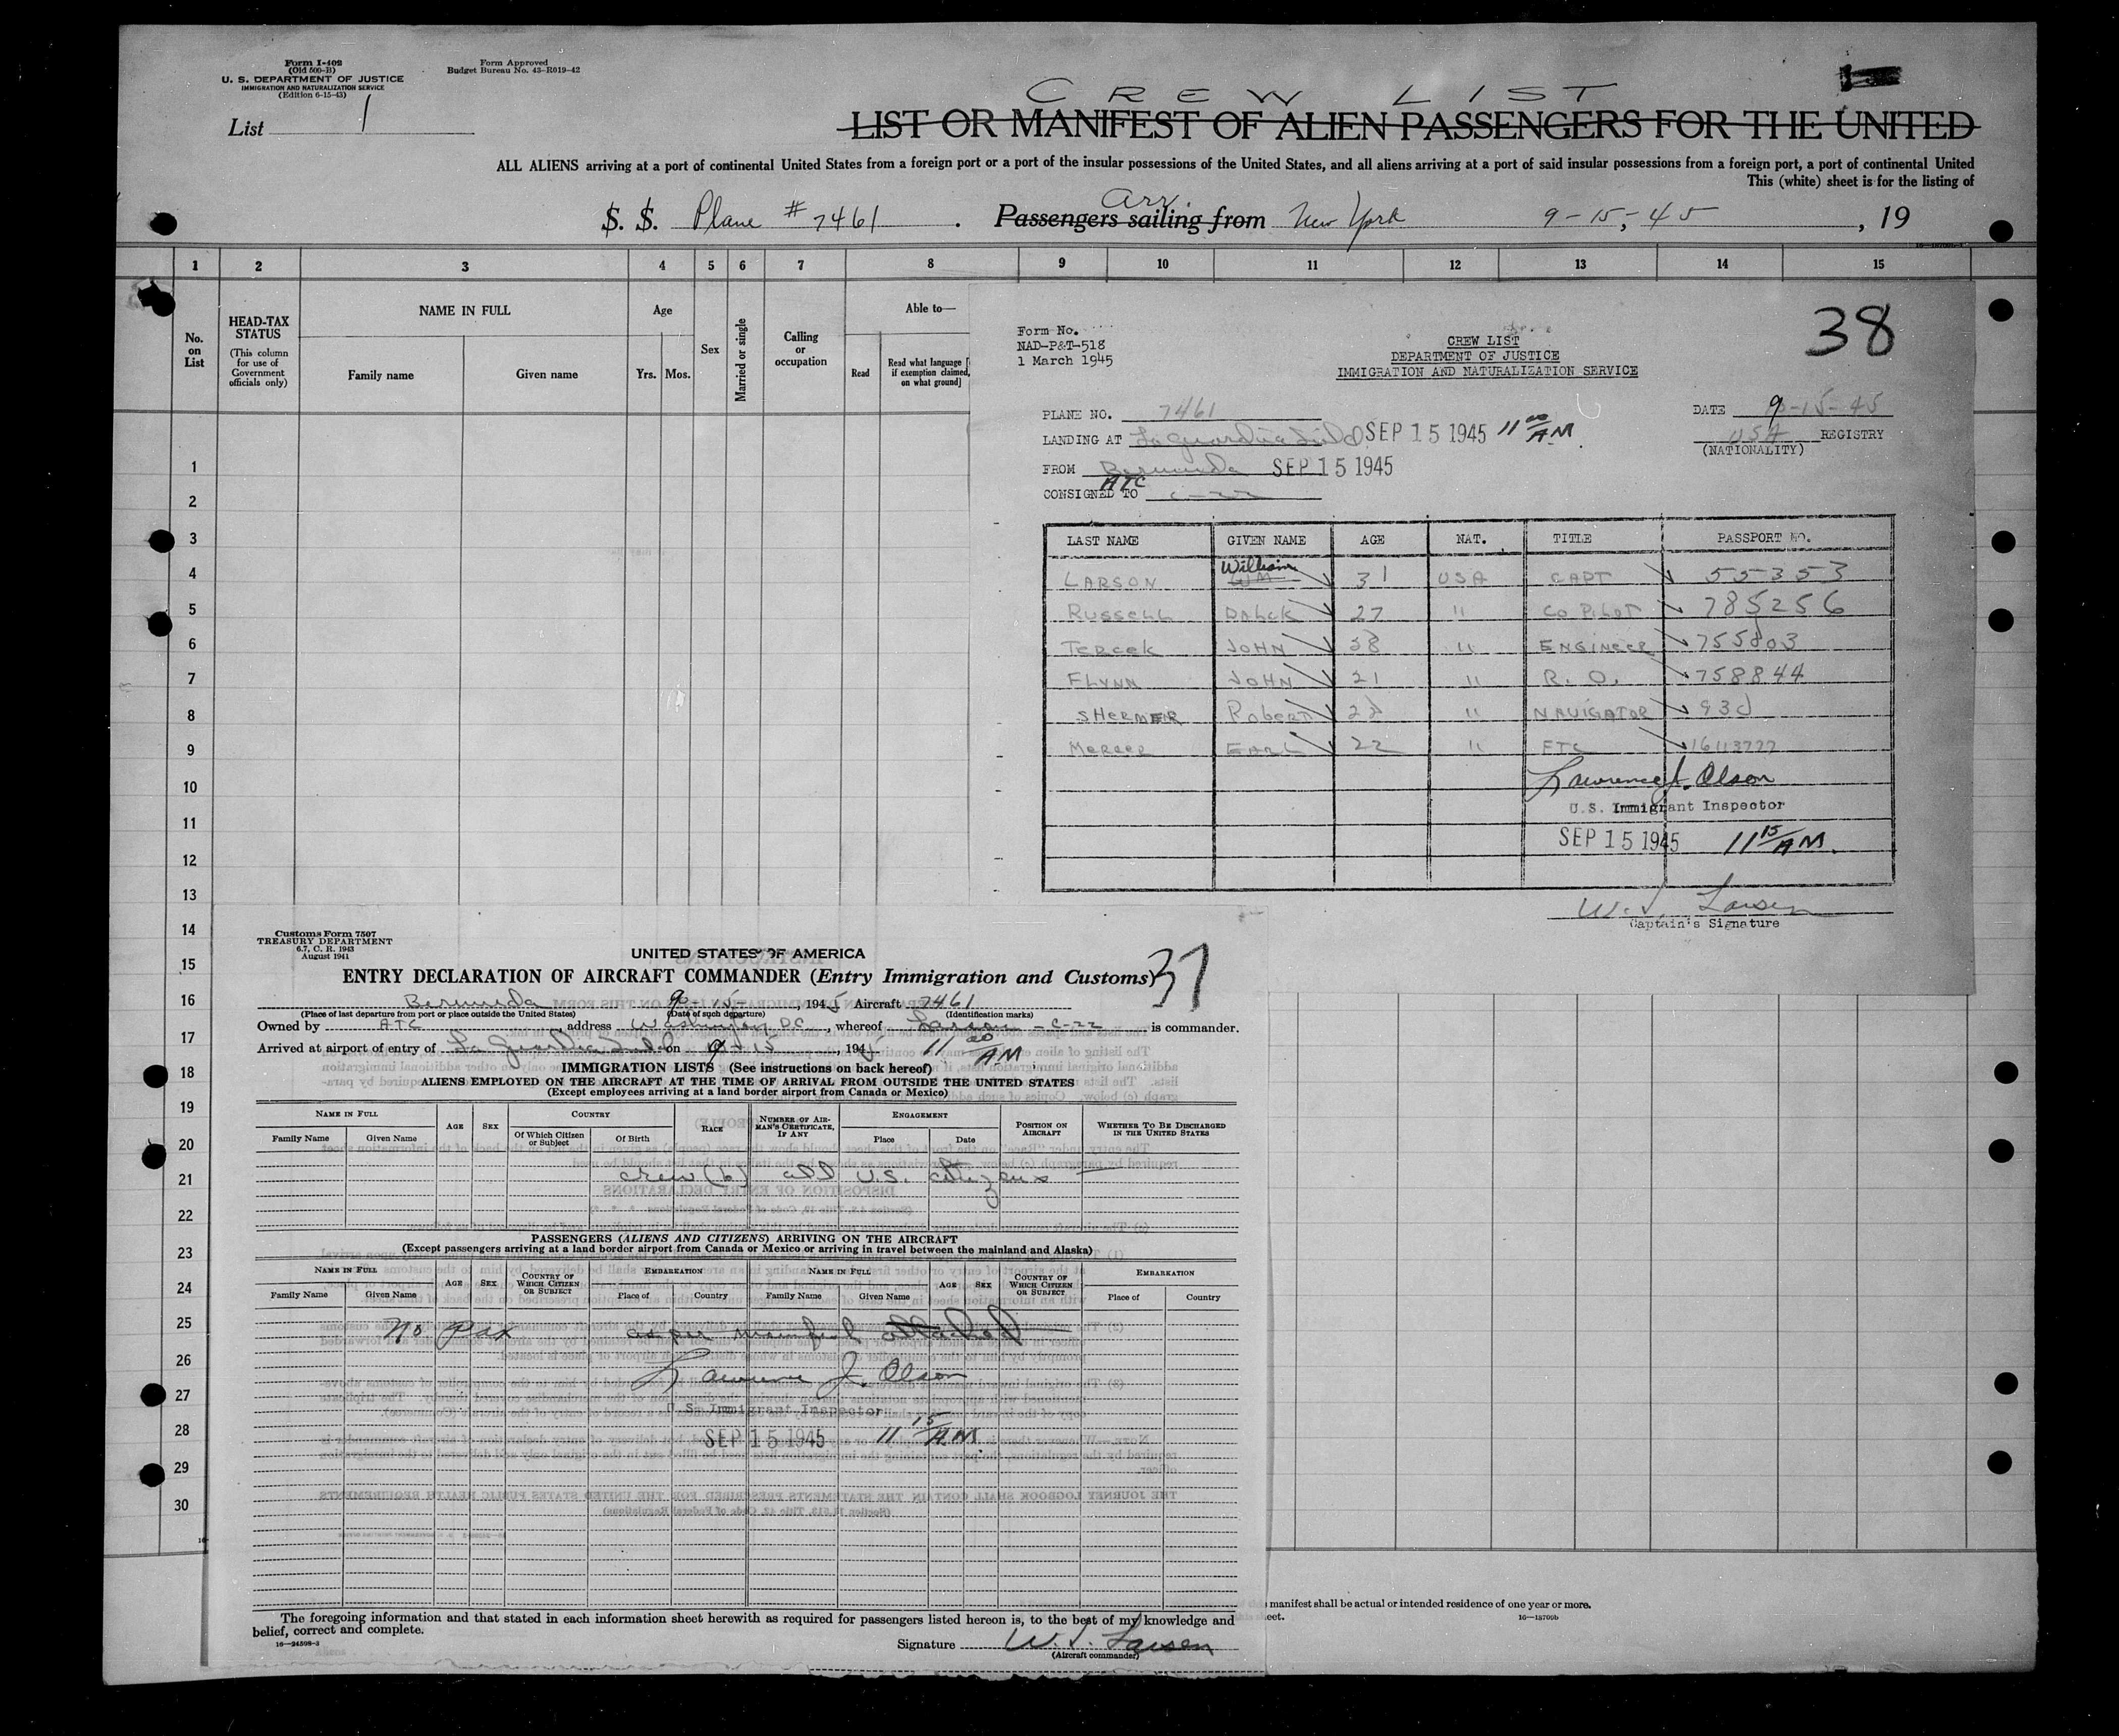 Form I-402
(Old 500-B)
U. S. DEPARTMENT OF JUSTICE
IMMIGRATION AND NATURALIZATION SERVICE
(Edition 6-15-43)
Form Approved
Budget Bureau No. 43-R019-42
List 1
CREW LIST
LIST OR MANIFEST OF ALIEN PASSENGERS FOR THE UNITED
ALL ALIENS arriving at a port of continental United States from a foreign port or a port of the insular possessions of the United States, and all aliens arriving at a port of said insular possessions from a foreign port, a port of continental United
This (white) sheet is for the listing of
S. S. Plane # 7461 . Passengers sailing from arr. New York 9-15-45, 19
1 2 3 4 5 6 7 8 9 10 11 12 13 14 15
No. on List
HEAD-TAX STATUS
(This column for use of Government officials only)
NAME IN FULL
Family name Given name
Age
Yrs. Mos.
Sex
Married or single
Calling or occupation
Able to—
Read
Read what language [
if exemption claimed,
on what ground]
1
2
3
4
5
6
7
8
9
10
11
12
13
14
15
16
17
18
19
20
21
22
23
24
25
26
27
28
29
30
38
Form No.
NAD-P&T-518
1 March 1945
CREW LIST
DEPARTMENT OF JUSTICE
IMMIGRATION AND NATURALIZATION SERVICE
PLANE NO. 7461
DATE 9-15-45
LANDING AT La Guardia Field SEP 15 1945 11 00 AM
USA REGISTRY
(NATIONALITY)
FROM Bermuda SEP 15 1945
CONSIGNED TO ATC C-22
LAST NAME GIVEN NAME AGE NAT. TITLE PASSPORT NO.
LARSON WM William 31 USA CAPT 55353
RUSSELL 27 " CO PILOT 785256
TERCEK JOHN 38 " ENGINEER 755803
FLYNN JOHN 21 " R. O. 758844
SHERMER Robert 28 " NAVIGATOR
MERCER EARL 22 " 16113777
Lawrence J. Olson
U.S. Immigrant Inspector
SEP 15 1945 11 15 AM.
W. J. Larsen
Captain's Signature
Customs Form 7507
TREASURY DEPARTMENT
6.7, C. R. 1943
August 1941
UNITED STATES OF AMERICA
37
ENTRY DECLARATION OF AIRCRAFT COMMANDER (Entry Immigration and Customs)
Bermuda 9-15-, 1945 Aircraft 7461
(Place of last departure from port or place outside the United States) (Date of such departure) (Identification marks)
Owned by ATC address Washington, D.C., whereof Larson - C-22 is commander.
Arrived at airport of entry of La Guardia Field on 9-15, 1945 11 00 AM
IMMIGRATION LISTS (See instructions on back hereof)
ALIENS EMPLOYED ON THE AIRCRAFT AT THE TIME OF ARRIVAL FROM OUTSIDE THE UNITED STATES
(Except employees arriving at a land border airport from Canada or Mexico)
NAME IN FULL AGE SEX COUNTRY RACE NUMBER OF AIRMAN'S CERTIFICATE, IF ANY ENGAGEMENT POSITION ON AIRCRAFT WHETHER TO BE DISCHARGED IN THE UNITED STATES
Family Name Given Name Of Which Citizen or Subject Of Birth Place Date
crew (6) all U.S. citizens
PASSENGERS (ALIENS AND CITIZENS) ARRIVING ON THE AIRCRAFT
(Except passengers arriving at a land border airport from Canada or Mexico or arriving in travel between the mainland and Alaska)
NAME IN FULL AGE SEX COUNTRY OF WHICH CITIZEN OR SUBJECT EMBARKATION NAME IN FULL AGE SEX COUNTRY OF WHICH CITIZEN OR SUBJECT EMBARKATION
Family Name Given Name Place of Country Family Name Given Name Place of Country
No Pax as per manifest attached
Lawrence J. Olson
U.S. Immigrant Inspector
SEP 15 1945 11 15 A.M.
The foregoing information and that stated in each information sheet herewith as required for passengers listed hereon is, to the best of my knowledge and
belief, correct and complete.
16—24598-3
Signature W. J. Larsen
(Aircraft commander)
manifest shall be actual or intended residence of one year or more.
eet.
16—18709b